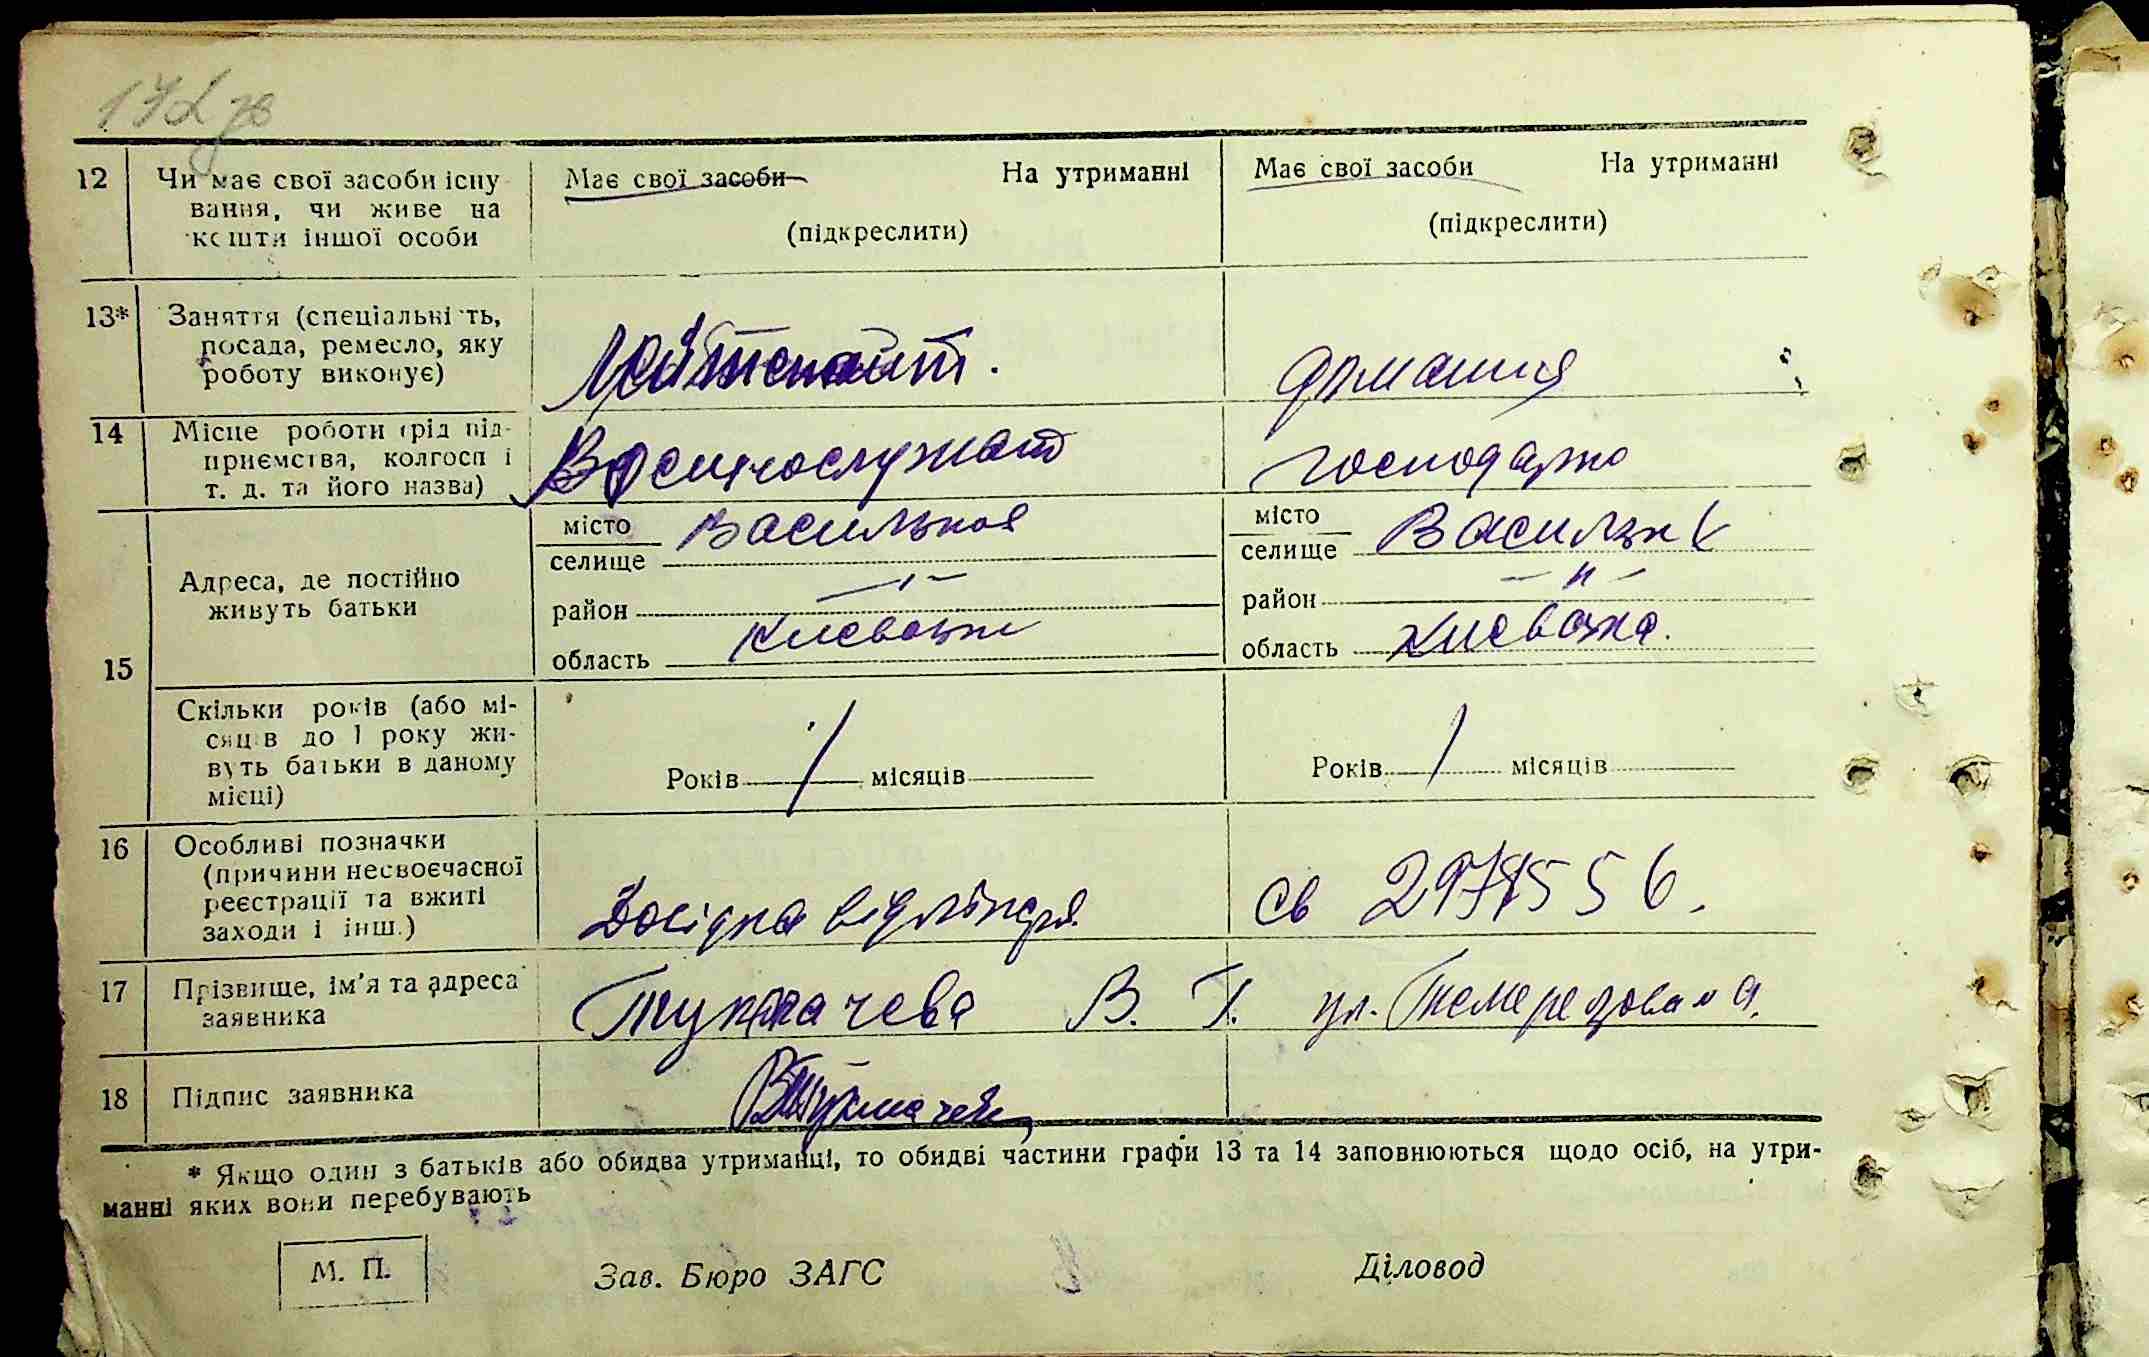 172 зв
12 Чи має свої засоби існу- Має свої засоби На утриманні Має свої засоби На утриманні
вання, чи живе на
кошти іншої особи (підкреслити) (підкреслити)
13* Заняття (спеціальність,
посада, ремесло, яку
роботу виконує) Лейтенант. домашня
14 Місце роботи (рід під-
приємства, колгосп і
т. д. та його назва) господарка
15 Адреса, де постійно
живуть батьки
місто Васильков місто Васильк
селище селище
район — " — район — " —
область область
Скільки років (або мі-
сяців до 1 року жи-
вуть батьки в даному
місці) Років 1 місяців Років 1 місяців
16 Особливі позначки
(причини несвоєчасної
реєстрації та вжиті
заходи і інш.) Довідка від лікаря св
17 Прізвище, ім'я та адреса
заявника Тукмачева В. Г. ул.
18 Підпис заявника ВТукмачев
* Якщо один з батьків або обидва утриманці, то обидві частини графи 13 та 14 заповнюються щодо осіб, на утри-
манні яких вони перебувають
М. П. Зав. Бюро ЗАГС Діловод